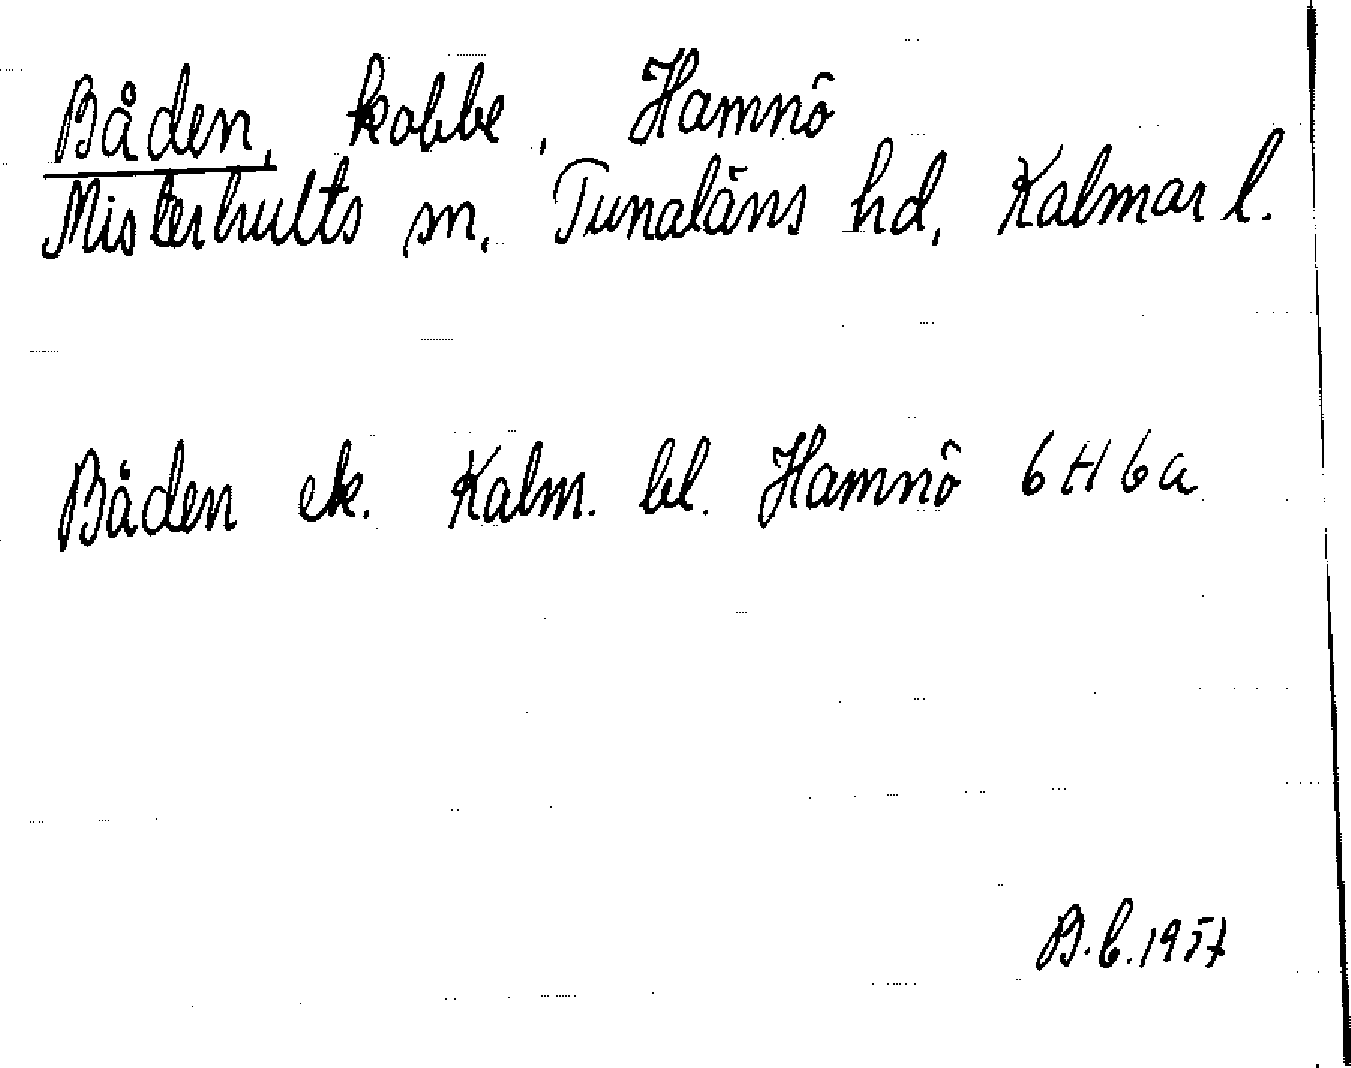 Båden, kobbe, Hamnö
Misterhults sn, Tunaläns hd, Kalmar l.
Båden ek. Kalm. bl. Hamnö 6H6a
B.C. 1957